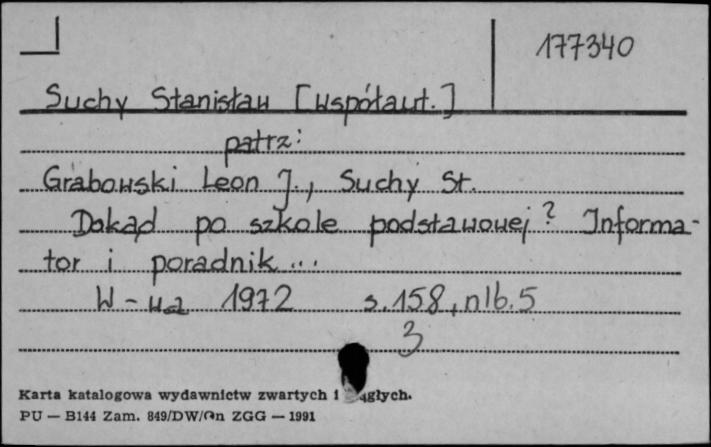 177340
Suchy Stanisław [współaut.]
patrz:
Grabowski Leon J., Suchy St.
Dokąd po szkole podstawowej? Informa-
tor i poradnik...
W-wa 1972 s. 158, nlb. 5
3
Karta katalogowa wydawnictw zwartych i
PU — B144 Zam. 849/DW/On ZGG — 1991